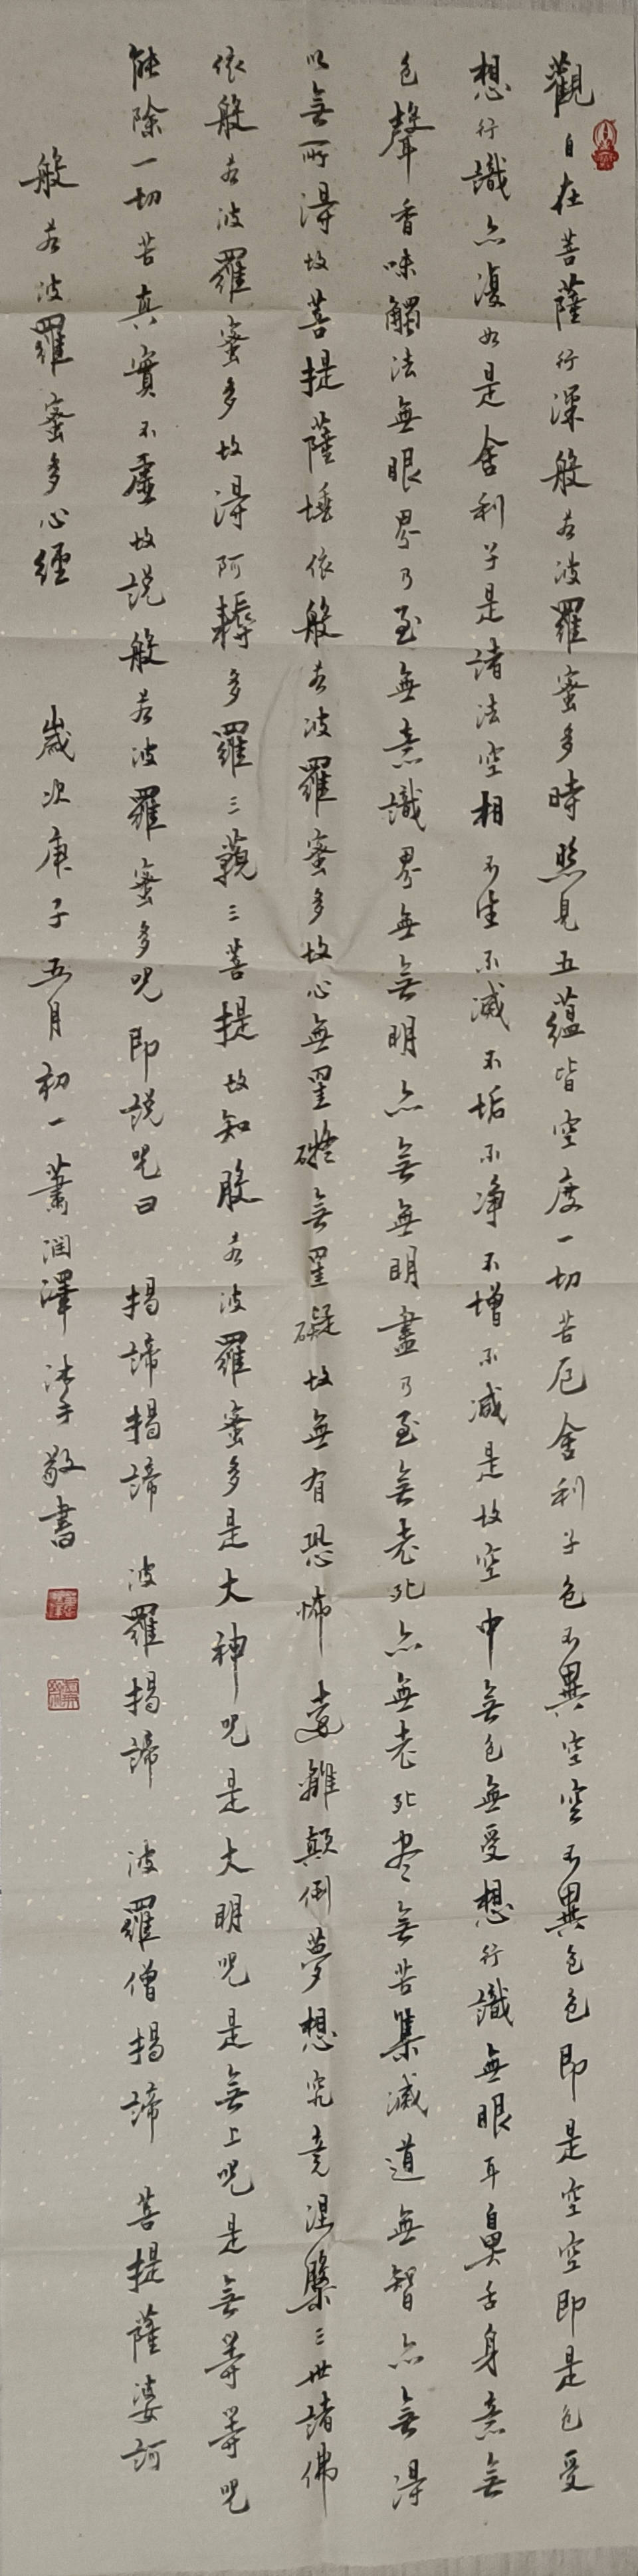 觀自在菩薩行深般若波羅蜜多時照見五蘊皆空度一切苦厄舍利子色不異空空不異色色即是空空即是色受
想行識亦復如是舍利子是諸法空相不生不滅不垢不净不增不減是故空中無色無受想行識無眼耳鼻舌身意無
色聲香味觸法無眼界乃至無意識界無無明亦無無明盡乃至無老死亦無老死盡無苦集滅道無智亦無得
以無所得故菩提薩埵依般若波羅蜜多故心無罣礙無罣礙故無有恐怖遠離顛倒夢想究竟涅槃三世諸佛
依般若波羅蜜多故得阿耨多羅三藐三菩提故知般若波羅蜜多是大神咒是大明咒是無上咒是無等等咒
能除一切苦真實不虛故說般若波羅蜜多咒即說咒曰 揭諦揭諦 波羅揭諦 波羅僧揭諦 菩提薩婆訶
般若波羅蜜多心經 歲次庚子五月初一蕭润澤沐手敬書